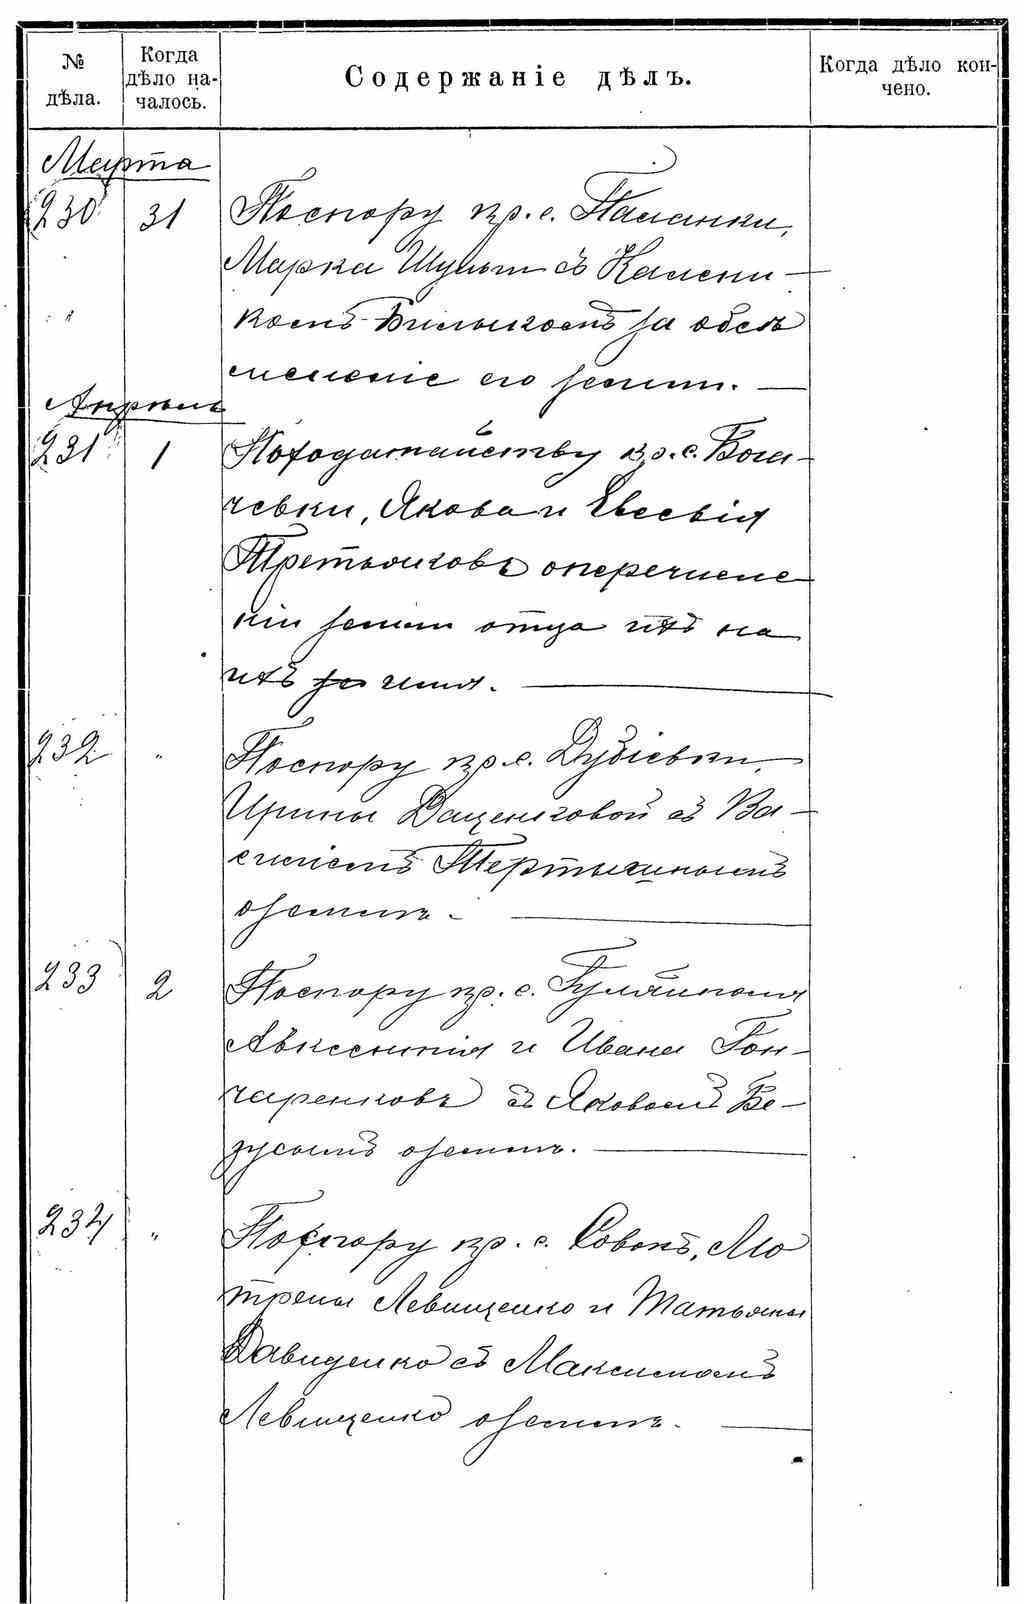 № дѣла.
Когда дѣло началось.
Содержаніе дѣлъ.
Когда дѣло кончено.
Марта
230 31 По спору кр. с. Паланки,
Марка Шульги съ Калени-
комъ Билыкомъ за обсѣ
мененіе его земли. —
Апрѣль
231 1 По ходатайству кр. с. Бога-
чевки, Якова и Евсевія
Третьяковъ о перечисле
ніи земли отца ихъ на
ихъ имя. —
232 " По спору кр. с.
Ирины Даценковой съ Ва-
силіемъ
о земли. —
233 2 По спору кр. с. Гуляйполя
Авксентія и Ивана Гон-
чаренковъ съ Яковомъ Бе-
зусымъ о земли. —
234 " По спору кр. с. Совокъ, Мо
трены Левищенко и Татьяны
Давиденко съ Максимомъ
Левищенко о земли. —